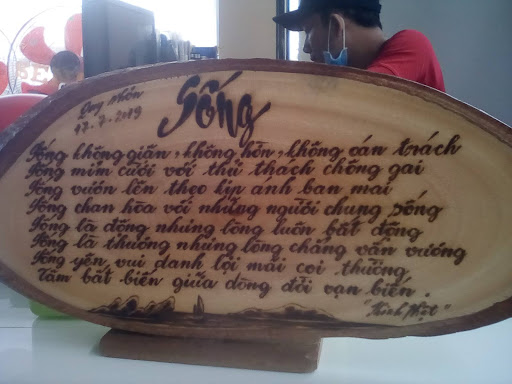 Quy Nhơn
17.7.2019
Sống
Sống không giãn, không hờn, không oán trách
Sống mỉm cười với thử thách chông gai
Sống vươn lên theo kịp ánh ban mai
Sống chan hòa với những người chung sống
Sống là động nhưng lòng luôn bất động
Sống là thương nhưng lòng chẳng vấn vương
Sống yên vui danh lợi mãi coi thường
Tâm bất biến giữa dòng đời vạn biến.
"Thích Nhật"